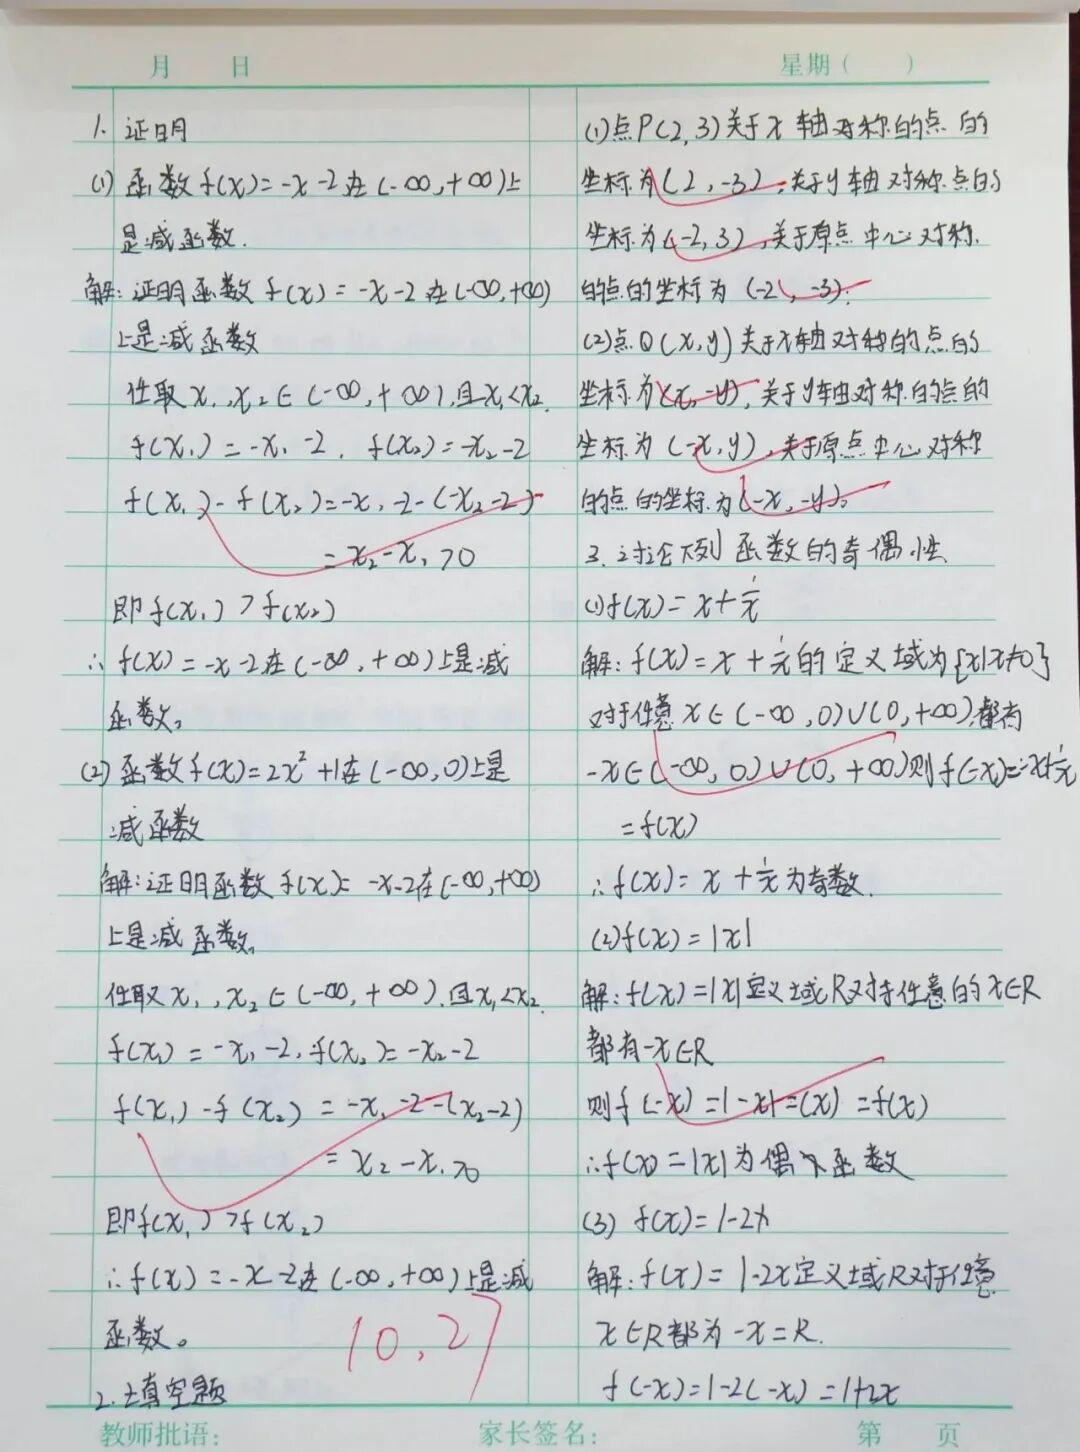 月 日 星期( )
1. 证明
(1) 函数f(x)=-x-2在(-∞,+∞)上
是减函数.
解:证明函数f(x)=-x-2在(-∞,+∞)
上是减函数
任取x₁,x₂∈(-∞,+∞),且x₁<x₂.
f(x₁)=-x₁-2. f(x₂)=-x₂-2
f(x₁)-f(x₂)=-x₁-2-(-x₂-2)
=x₂-x₁>0
即f(x₁)>f(x₂)
∴f(x)=-x-2在(-∞,+∞)上是减
函数。
(2) 函数f(x)=2x²+1在(-∞,0)上是
减函数
解:证明函数f(x)=-x-2在(-∞,+∞)
上是减函数。
任取x₁,x₂∈(-∞,+∞).且x₁<x₂.
f(x₁)=-x₁-2,f(x₂)=-x₂-2
f(x₁)-f(x₂)=-x₁-2-(x₂-2)
=x₂-x₁>0
即f(x₁)>f(x₂)
∴f(x)=-x-2在(-∞,+∞)上是减
函数。
10.27
2.填空题
(1)点P(2,3)关于x轴对称的点的
坐标为(2,-3),关于y轴对称点的
坐标为(-2,3),关于原点中心对称
的点的坐标为(-2,-3).
(2)点Q(x,y)关于x轴对称的点的
坐标为(x,-y),关于y轴对称的点的
坐标为(-x,y),关于原点中心对称
的点的坐标为(-x,-y).
3.讨论下列函数的奇偶性.
(1)f(x)=x+1/x
解:f(x)=x+1/x的定义域为{x|x≠0}
对于任意x∈(-∞,0)∪(0,+∞),都有
-x∈(-∞,0)∪(0,+∞)则f(-x)=-x+1/x
=f(x)
∴f(x)=x+1/x为奇数.
(2)f(x)=|x|
解:f(x)=|x|定义域R对于任意的x∈R
都有-x∈R
则f(-x)=|-x|=(x)=f(x)
∴f(x)=|x|为偶函数
(3) f(x)=1-2x
解:f(x)=1-2x定义域R对于任意
x∈R都为-x=R.
f(-x)=1-2(-x)=1+2x
教师批语: 家长签名: 第 页